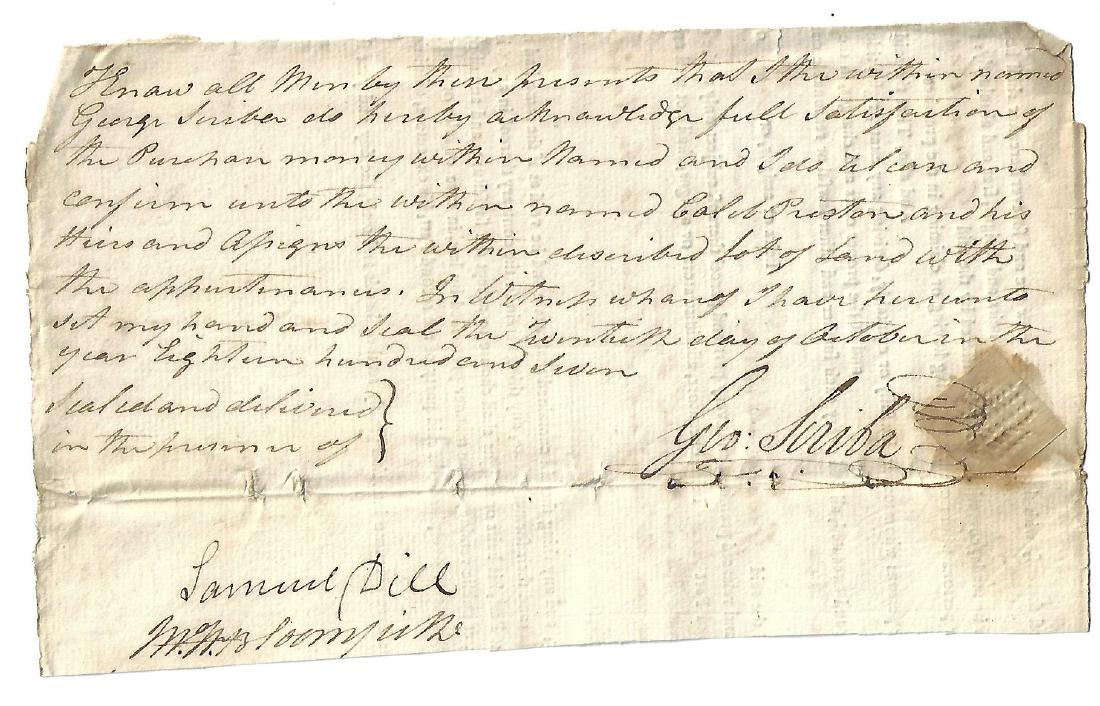 Know all Men by these presents that I the within named
George Scriba do hereby acknowledge full Satisfaction of
the Purchase money within Named and I do Release and
confirm unto the within named Caleb Preston and his
Heirs and Assigns the within described lot of Land with
the appurtenances. In Witness whereof I have hereunto
set my hand and Seal the Twentieth day of October in the
year Eighteen hundred and Seven
Sealed and delivered
in the presence of
Geo: Scriba
Samuel Dill
Bloomfield